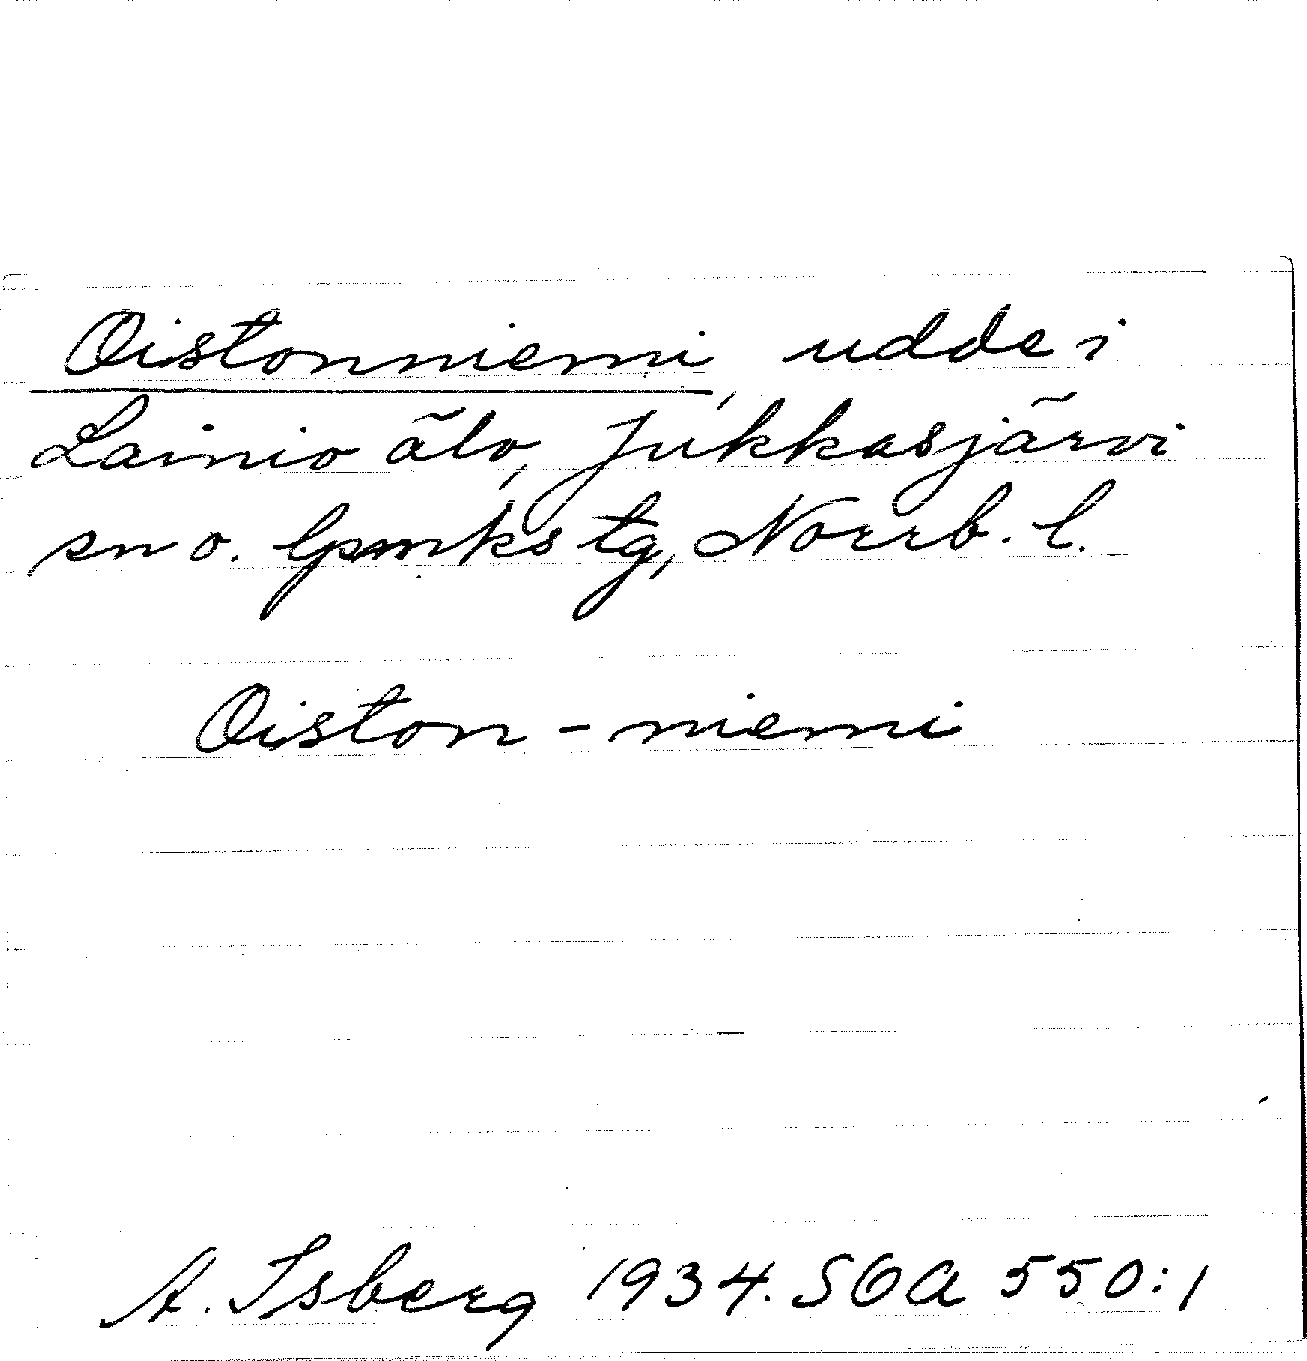 Oistonniemi, udde i
Lainio älv, Jukkasjärvi
sn o. lpmks tg, Norrb. l.
Oiston - niemi
A. Isberg 1934. SOA 550:1